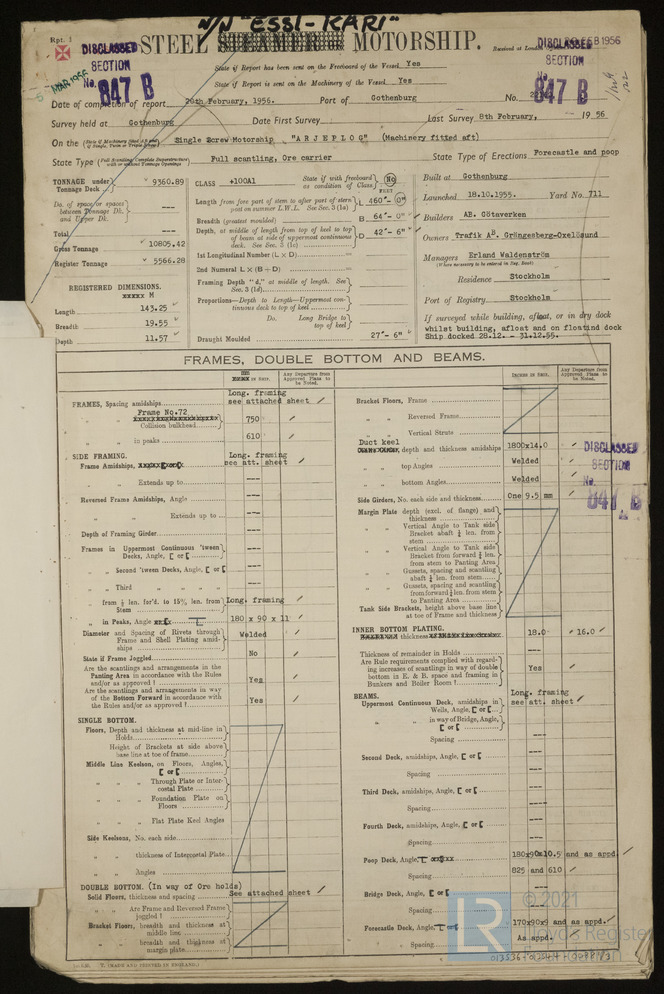 N/N "ESSI-KARI"
Rpt. 1
STEEL STEAMER MOTORSHIP.
DISCLASSED SECTION No. 847 B
DISCLASSED SECTION 847 B
Received at London
FEB 1956
MAR 1956
State if Report has been sent on the Freeboard of the Vessel Yes
State if Report is sent on the Machinery of the Vessel Yes
Date of completion of report 20th February, 1956. Port of Gothenburg No.
Survey held at Gothenburg Date First Survey Last Survey 8th February, 1956
On the Single Screw Motorship "ARJEPLOG" (Machinery fitted aft)
State Type Full scantling, Ore carrier State Type of Erections Forecastle and poop
TONNAGE under Tonnage Deck 9360.89
Do. of space or spaces between Tonnage Dk. and Upper Dk. ---
Total ---
Gross Tonnage 10805.42
Register Tonnage 5566.28
REGISTERED DIMENSIONS.
xxxxx M
Length 143.25
Breadth 19.55
Depth 11.57
CLASS +100A1 State if with freeboard as condition of Class No
FEET
Length from fore part of stem to after part of stern post on summer L.W.L. See Sec. 3 (1a) L 460'- 0"
Breadth (greatest moulded) B 64'- 0"
Depth, at middle of length from top of keel to top of beam at side of uppermost continuous deck. See Sec. 3 (1c) D 42'- 6"
1st Longitudinal Number (L × D)
2nd Numeral L × (B + D)
Framing Depth "d," at middle of length. See Sec. 3 (1d)
Proportions—Depth to Length—Uppermost continuous deck to top of keel
Do. Long Bridge to top of keel
Draught Moulded 27'- 6"
Built at Gothenburg
Launched 18.10.1955. Yard No. 711
Builders AB. Götaverken
Owners Trafik AB. Grängesberg-Oxelösund
Managers Erland Waldenström
(Where necessary to be entered in Reg. Book)
Residence Stockholm
Port of Registry Stockholm
If surveyed while building, afloat, or in dry dock
whilst building, afloat and on floatind dock
Ship docked 28.12. - 31.12.55.
FRAMES, DOUBLE BOTTOM AND BEAMS.
Any Departure from Approved Plans to be Noted.
INCHES IN SHIP.
Any Departure from Approved Plans to be Noted.
FRAMES, Spacing amidships Long. framing see attached sheet
Frame No.72
Collision bulkhead 750
" " in peaks 610
SIDE FRAMING.
Frame Amidships, Long. framing see att. sheet
" " Extends up to ---
Reversed Frame Amidships, Angle ---
" " Extends up to ---
Depth of Framing Girder ---
Frames in Uppermost Continuous 'tween Decks, Angle, [ or [ ---
" Second 'tween Decks, Angle, [ or [ ---
" Third " " " " ---
" from ⅕ len. for'd. to 15% len. from Stem Long. framing
" in Peaks, Angle 180 x 90 x 11
Diameter and Spacing of Rivets through Frame and Shell Plating amidships Welded
State if Frame Joggled No
Are the scantlings and arrangements in the Panting Area in accordance with the Rules and/or as approved? Yes
Are the scantlings and arrangements in way of the Bottom Forward in accordance with the Rules and/or as approved? Yes
SINGLE BOTTOM.
Floors, Depth and thickness at mid-line in Holds
Height of Brackets at side above base line at toe of frame
Middle Line Keelson, on Floors, Angles, [ or [
" " " Through Plate or Intercostal Plate
" " " Foundation Plate on Floors
" " " Flat Plate Keel Angles
Side Keelsons, No. each side
" " thickness of Intercostal Plate
" " Angles
DOUBLE BOTTOM. (In way of Ore holds)
Solid Floors, thickness and spacing See attached sheet
" " Are Frame and Reversed Frame joggled?
Bracket Floors, breadth and thickness at middle line
" " breadth and thickness at margin plate
Bracket Floors, Frame
" " Reversed Frame
" " Vertical Struts
Duct keel depth and thickness amidships 1800x14.0
" " top Angles Welded
" " bottom Angles Welded
Side Girders, No. each side and thickness One 9.5 mm
Margin Plate depth (excl. of flange) and thickness
" " Vertical Angle to Tank side Bracket abaft ¼ len. from stem
" " Vertical Angle to Tank side Bracket from forward ¼ len. from stem to Panting Area
" " Gussets, spacing and scantling abaft ¼ len. from stem
" " Gussets, spacing and scantling from forward ¼ len. from stem to Panting Area
Tank Side Brackets, height above base line at toe of Frame and thickness
INNER BOTTOM PLATING.
thickness 18.0 16.0
Thickness of remainder in Holds ---
Are Rule requirements complied with regarding increases of scantlings in way of double bottom in E. & B. space and framing in Bunkers and Boiler Room? Yes
BEAMS.
Uppermost Continuous Deck, amidships in Wells, Angle, [ or [ Long. framing see att. sheet
" " in way of Bridge, Angle, [ or [ ---
Spacing ---
Second Deck, amidships, Angle, [ or [ ---
Spacing ---
Third Deck, amidships, Angle, [ or [ ---
Spacing ---
Fourth Deck, amidships, Angle, [ or [ ---
Spacing ---
Poop Deck, Angle, 180x90x10.5 and as appd.
Spacing 825 and 610
Bridge Deck, Angle, [ or [ ---
Spacing ---
Forecastle Deck, Angle, [ or [ 170x90x9 and as appd.
Spacing As appd.
DISCLASSED SECTION No. 847 B
T. (MADE AND PRINTED IN ENGLAND.)
© 2021
LR
Lloyd's Register